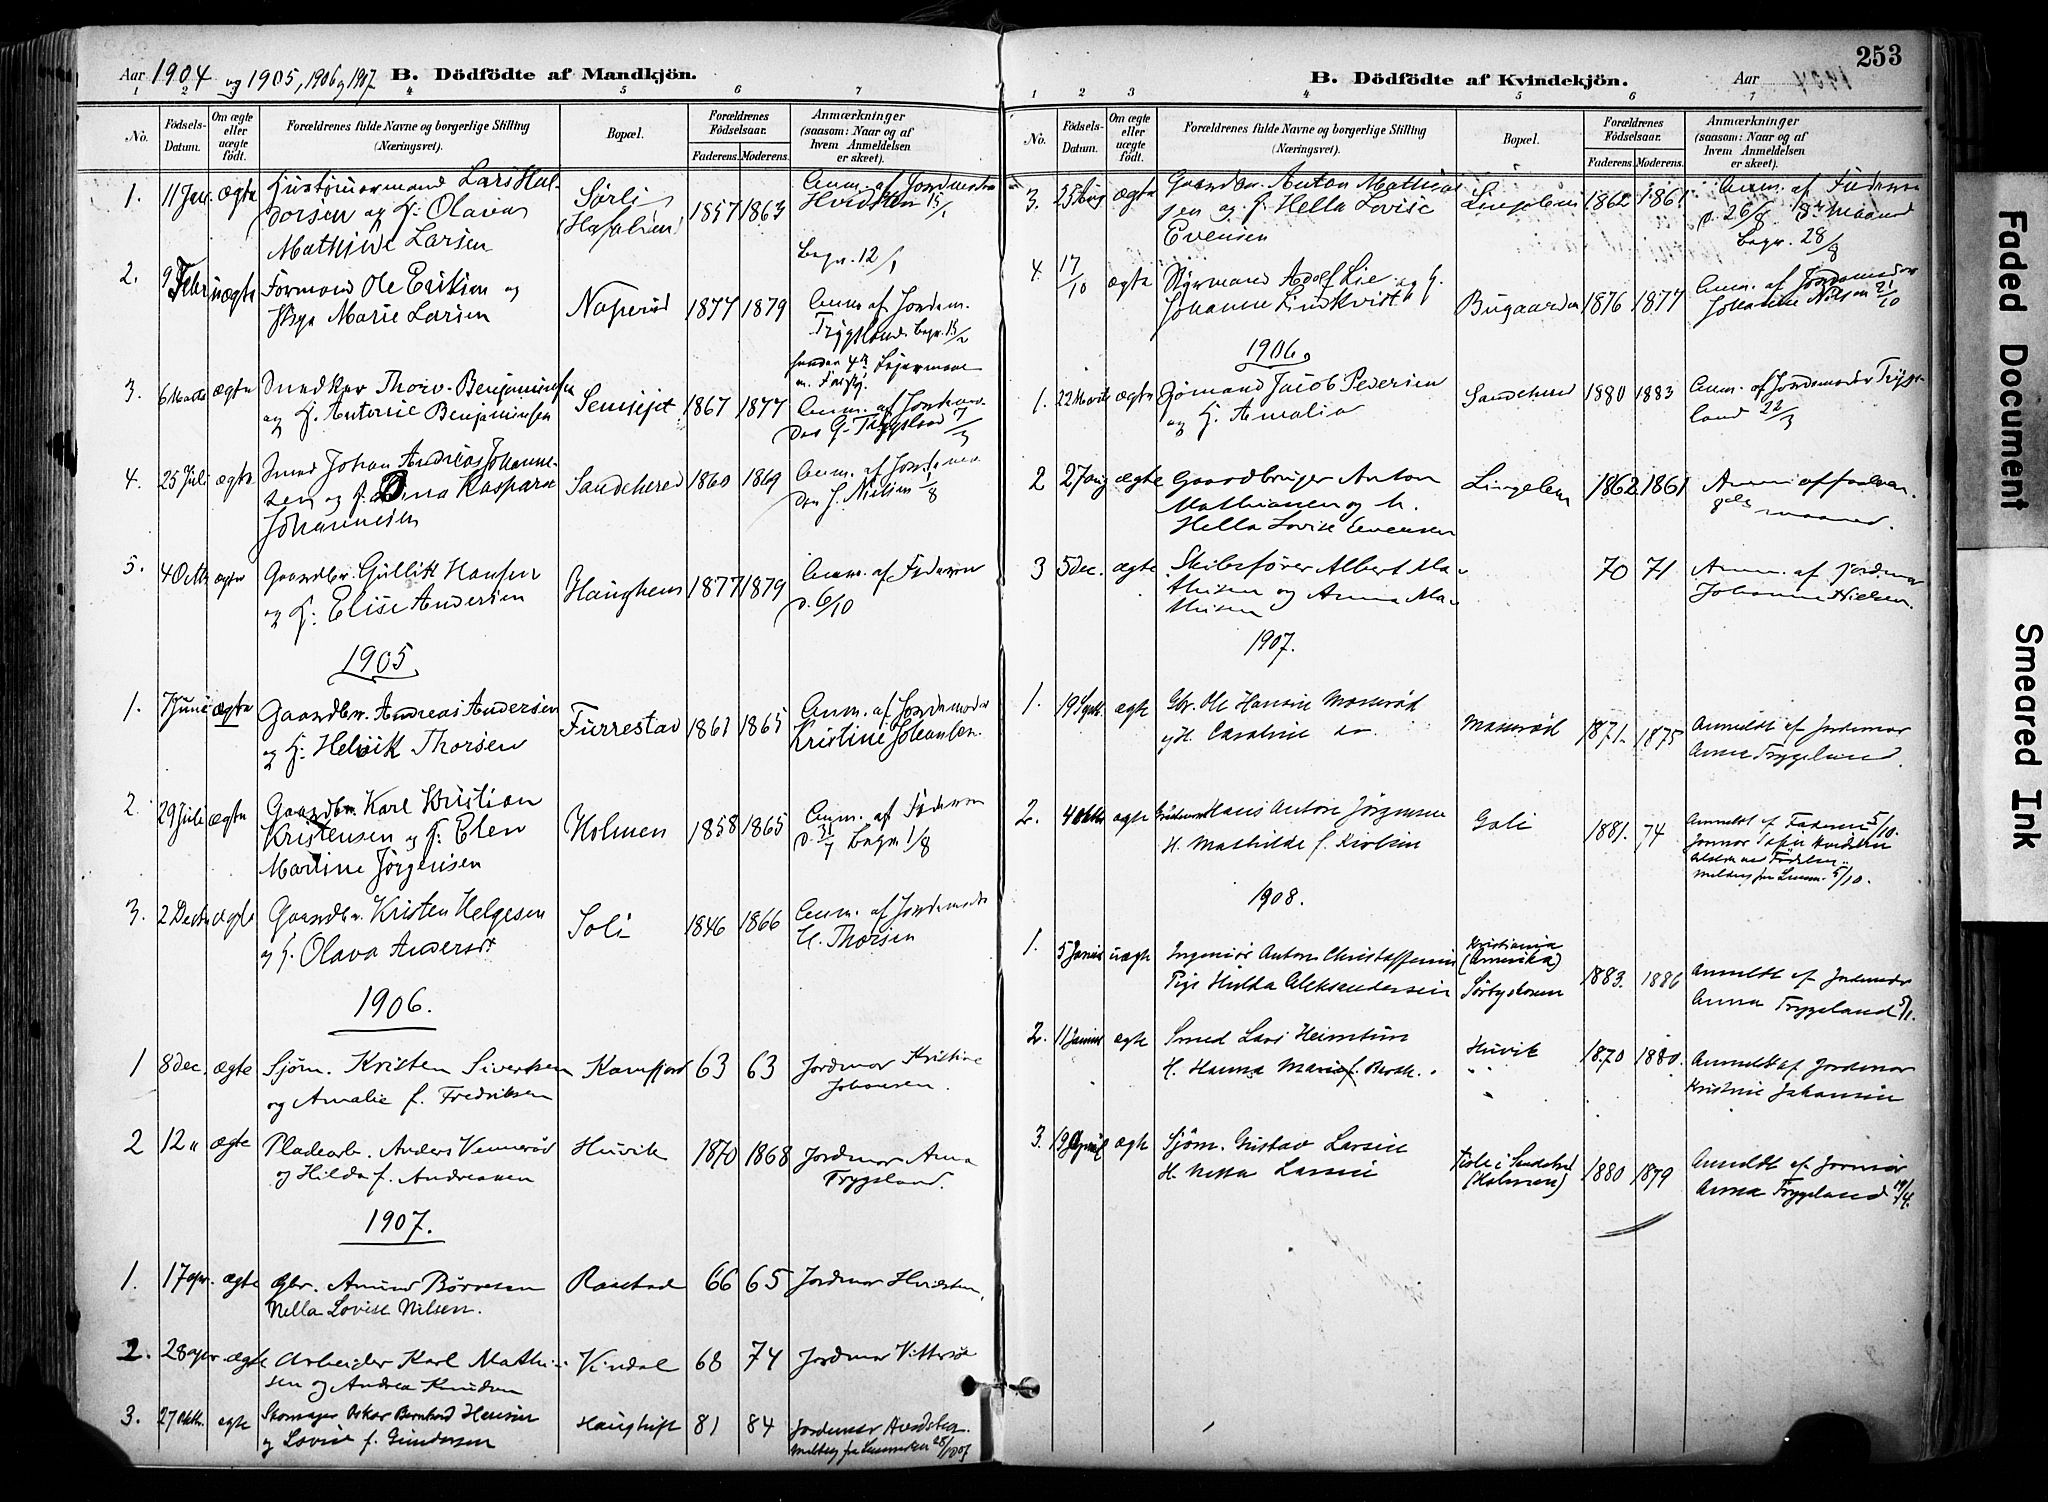 Aar 1904 og 1905, 1906 og 1907 B. Dödfödte af Mandkjön.
1 2 4 5 6 7
No. Födsels-Datum. Om ægte eller uægte födt. Forældrenes fulde Navne og borgerlige Stilling (Næringsvei). Bopæl. Forældrenes Födselsaar. Faderens. Moderens. Anmærkninger (saasom: Naar og af hvem Anmeldelsen er skeet).
1. 11 Jan. ægte Lars Hal-
dorsen og H: Olava
Mathine Larsen
Sørli
1857 1863
Anm. af Jordmoder
Hvidsten 15/1
Begr. 12/1
2. 9 Febr uægte Formand Ole Eriksen og
Pige Marie Larsen
Naperød 1877 1879
Anm. af Jordem.
Trygsland. Begr. 15/2
3. 6 Marts ægte Snedker Thorv. Benjaminsen
og H. Antonie Benjaminsen
1867 1877
Anm. af Jordmo-
der G. Trygsland 7/3
4. 25 Juli ægte Smed Johan Andreas Johanne-
sen og H. Dina Kasparа
Johannesen
Sandehered 1860 1869
Anm. af Jordemo-
der J. Nielsen 1/8
5. 4 Octbr ægte Gaardbr. Gullik Hansen
og H: Elise Andersen
Haughem 1877 1879
Anm. af Faderen
d. 6/10
1905
1. 7 Juni ægte Gaardbr. Andreas Andersen
og H: Helvik Thorsen
Furrestad 1861 1865
Anm. af Jordemoder
Kristine Johansen.
2. 29 Juli ægte Gaardbr. Karl Kristian
Kristensen og H: Elen
Martine Jørgensen
Holmen 1858 1865
Anm. af Faderen
d. 31/7 Begr. 1/8
3. 2 Decbr ægte Gaardbr. Kristen Helgesen
og H. Olava Andersdt
Soli 1846 1866
Anm. af Jordemoder
E. Thorsen
1906.
1 8 dec. ægte Sjøm. Kristen Sivertsen
og Amalie f. Fredriksen
Kamfjord 63 63
Jordmor Kristine
Johansen.
2 12 " ægte Pladearb. Anders Vennerød
og Hilda f. Andreasen
Huvik 1870 1868
Jordmor Anna
Trygsland.
1907.
1. 17 apr. ægte Gbr. Amund Børresen
Nella Lovise Nilsen.
Raastad 66 65 Jordmor Hvidsten.
2. 28 apr ægte Arbeider Karl Mathi-
sen og Andrea Knudsen
Vindal 68 74 Jordmor Vittersø
3. 27 Oktbr. ægte Skomager Oskar Bernhard Hansen
og Lovise f. Gundersen
81 84
Jordmor Hvidsten.
253
B. Dödfödte af Kvindekjön. Aar
1 2 3 4 5 6 7
No. Födsels-Datum. Om ægte eller uægte födt. Forældrenes fulde Navne og borgerlige Stilling (Næringsvei). Bopæl. Forældrenes Födselsaar. Faderens. Moderens. Anmærkninger (saasom: Naar og af hvem Anmeldelsen er skeet).
3. 25 Aug ægte Gaardbr. Anton Mathia-
sen og H. Hella Lovise
Evensen
Lingelem 1862 1861
Anm. af Faderen
d. 26/8
Begr. 28/8
4. 17/10 ægte Styrmand Adolf Lie og H.
Johanne Lindkvist
Bugaarden 1876 1877
Anm. af Jordemoder
Johanne Nilsen 21/10
1906.
1. 22 Marts ægte Sømand Jacob Pedersen
og H. Amalia
Sandehered 1880 1883
Anm. af Jordemoder Trygs-
land 22/3
2 27 aug ægte Gaardbruger Anton
Mathiasen og h.
Hella Lovise Evensen
Lingelem 1862 1861
3 5 dec. ægte Skibsfører Albert Ma-
thisen og Anna Ma-
thisen
70 71
Anm. af Jordmor
Johanne Nielsen.
1907.
1. 19 Septb ægte Gbr. Ole Hansen Massrød
og H. Caroline do
Massrød 1871. 1875
Anmeldt af Jordemor
Anna Trygsland.
2. 4 Oktbr ægte Hans Anton Jørgensen
H. Mathilde f. Nielsen
Goli 1881. 74
Anmeldt af Faderen 5/10.
1908.
1. 5 Januar uægte Ingeniør Anton Christoffersen
Pige Hulda Aleksandersen
Kristiania
(Amerika)
1883. 1886
Anmeldt af Jordemoder
Anna Trygsland 5/1.
2. 11 Januar ægte Smed Lars Heimtun
H. Hanna Marie f. Berth.
Huvik 1870 1880.
Anmeldt af Jordemor
Kristine Johansen
3. 19 April ægte Sjøm. Gustav Larsen
H. Netta Larsen
(Holmen) 1880 1879
Anmeldt af Jormor
Anna Trygsland 19/4.
Faded Document
Smeared Ink